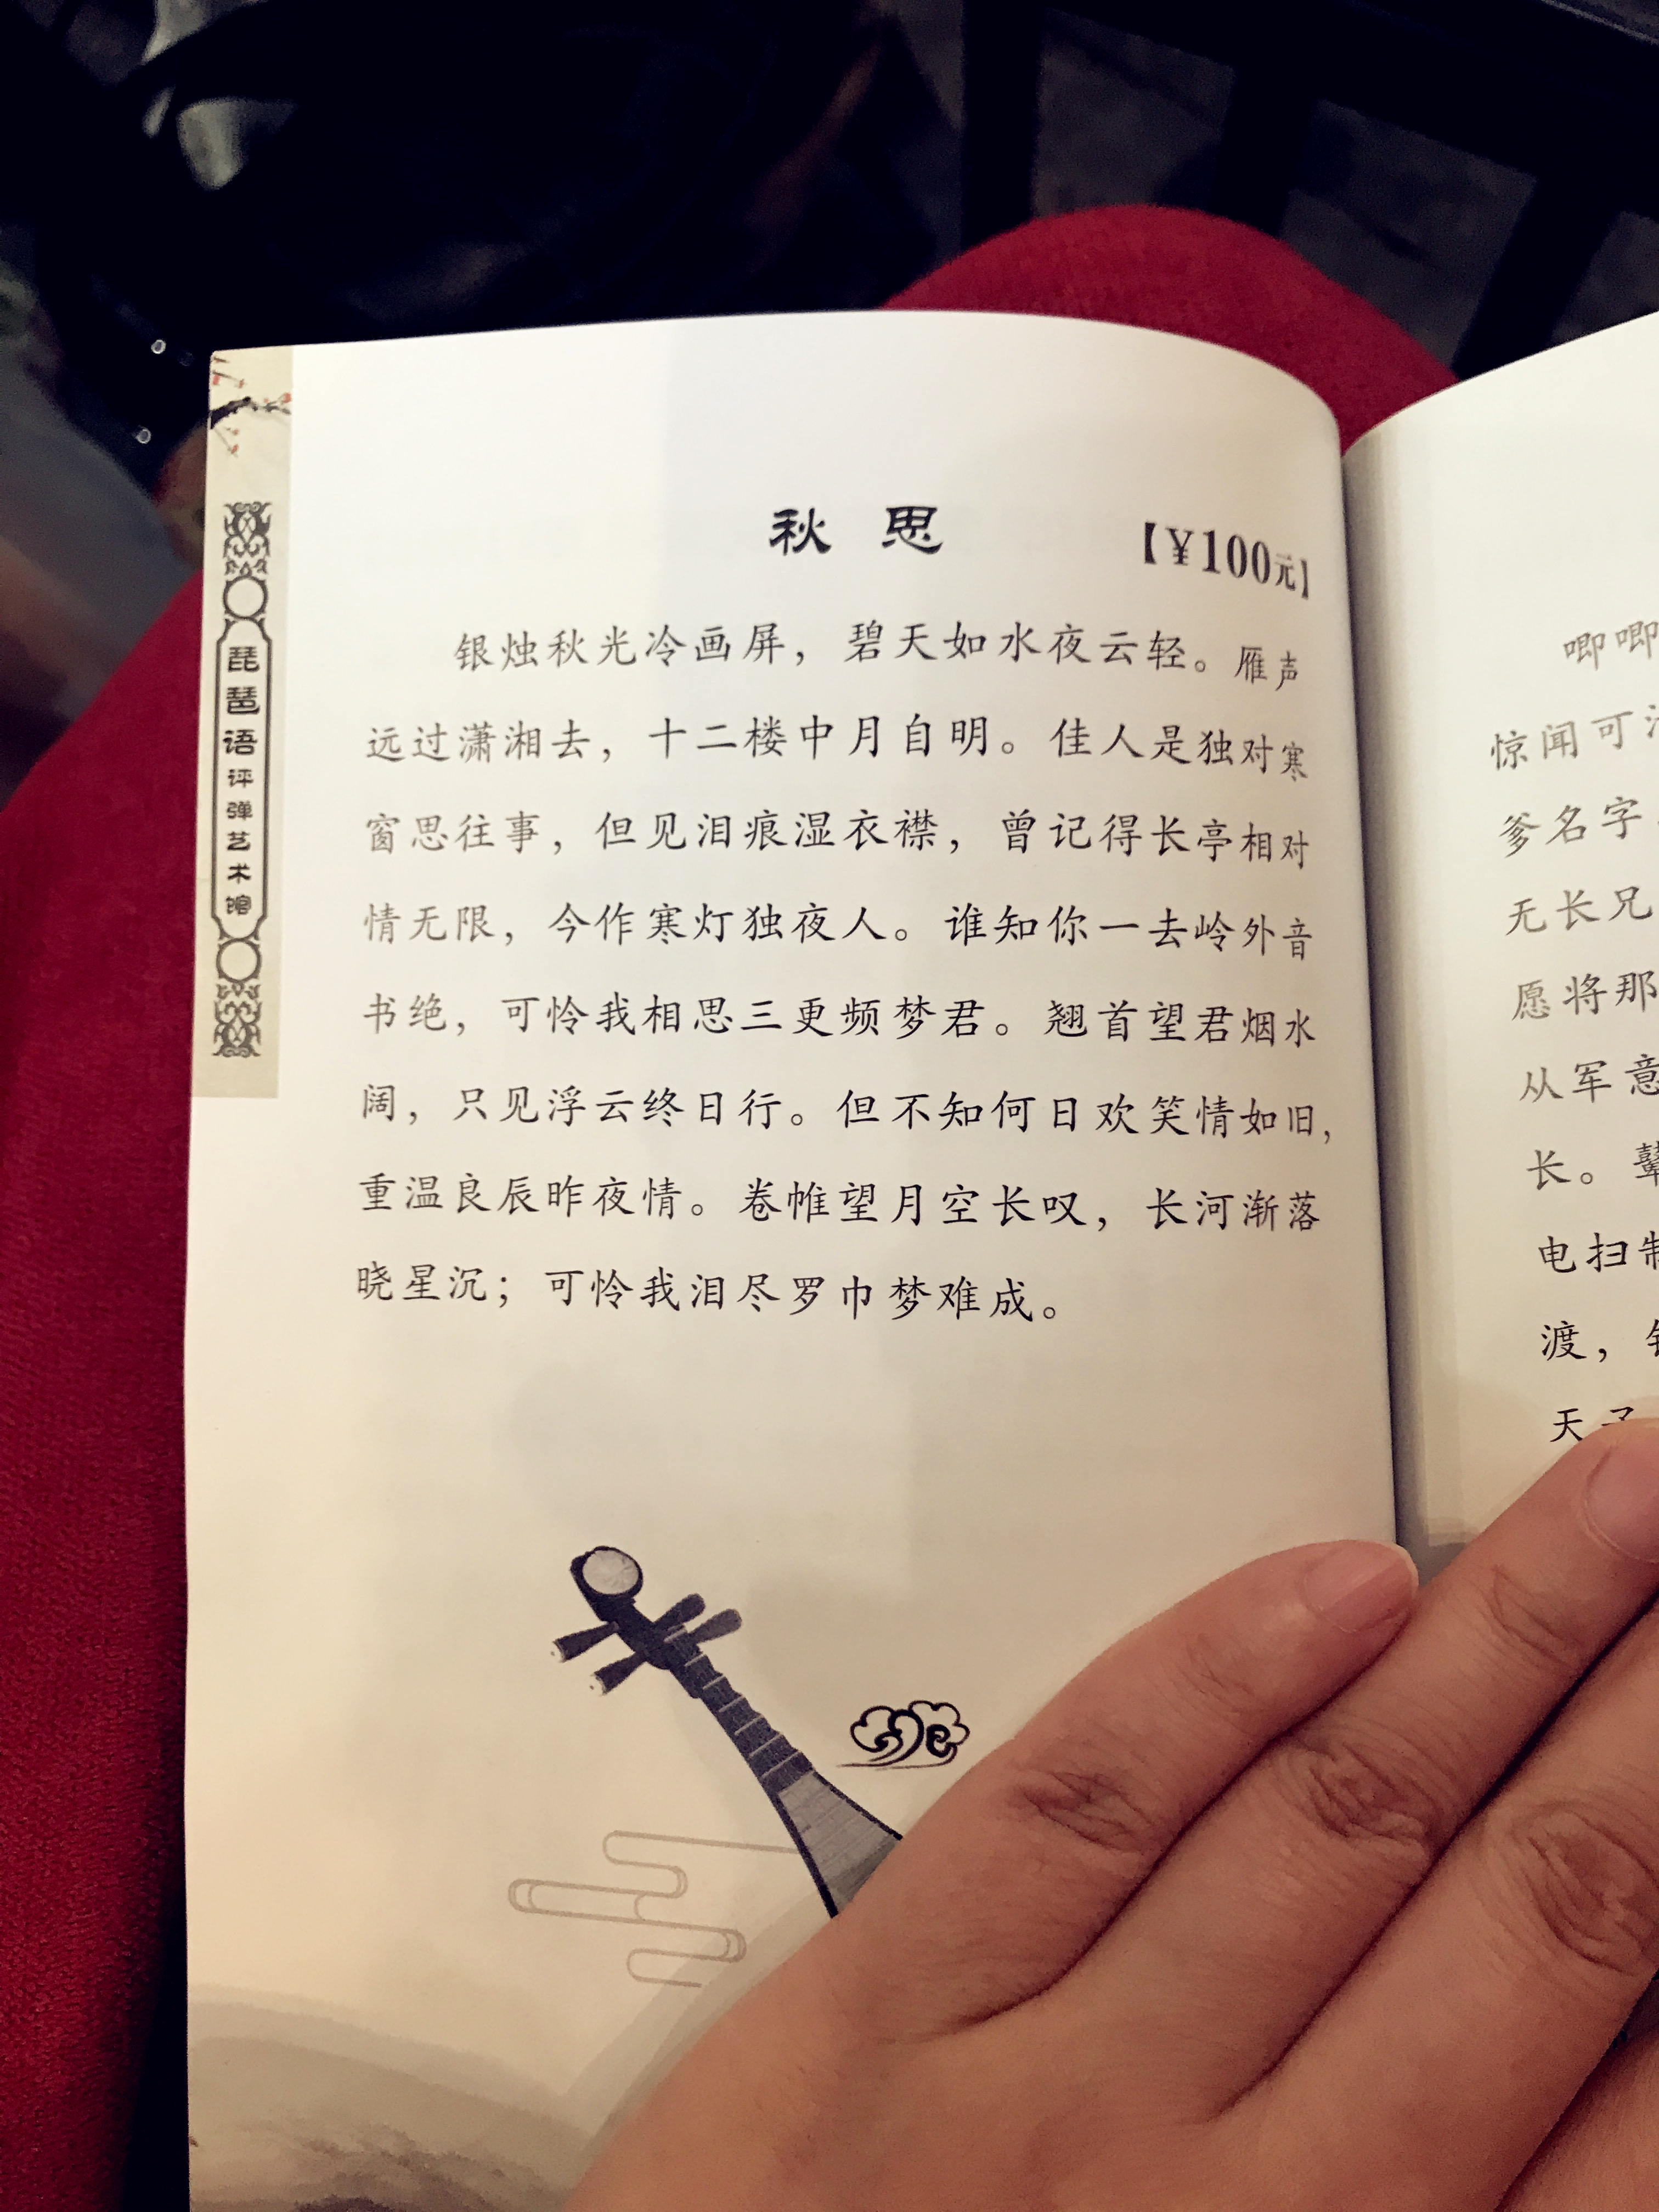 琵琶语评弹艺术馆
秋思
【¥100元】
银烛秋光冷画屏，碧天如水夜云轻。雁声
远过潇湘去，十二楼中月自明。佳人是独对寒
窗思往事，但见泪痕湿衣襟，曾记得长亭相对
情无限，今作寒灯独夜人。谁知你一去岭外音
书绝，可怜我相思三更频梦君。翘首望君烟水
阔，只见浮云终日行。但不知何日欢笑情如旧，
重温良辰昨夜情。卷帷望月空长叹，长河渐落
晓星沉；可怜我泪尽罗巾梦难成。
唧唧
惊闻可
爹名字
无长兄
愿将那
从军意
长。
电扫
渡，
天子